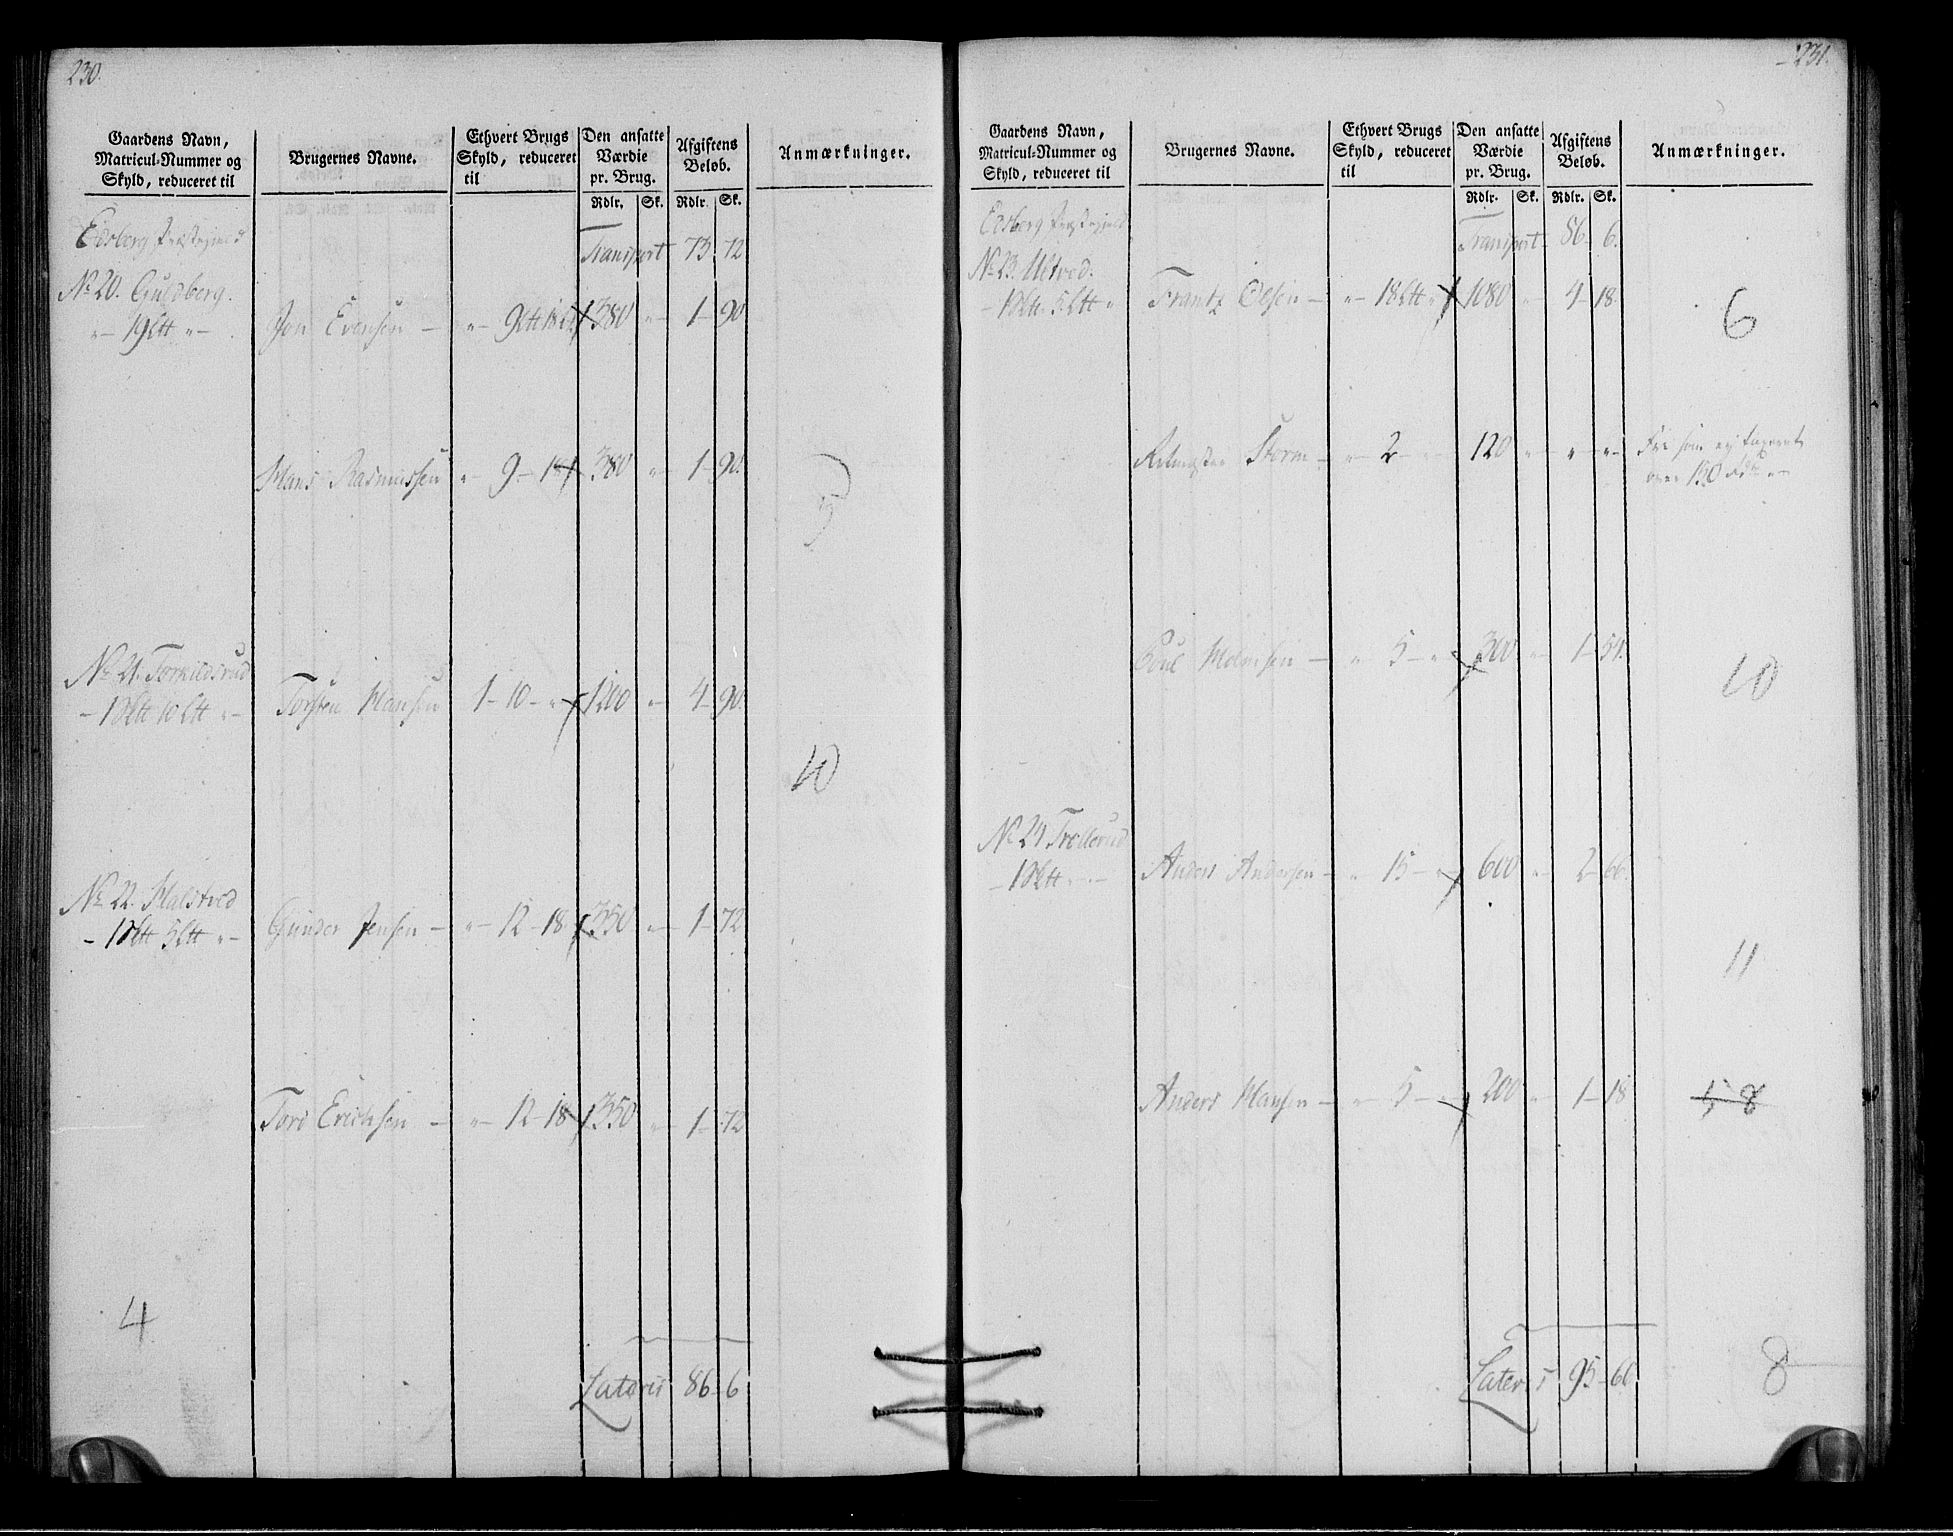 230.
Gaardens Navn,
Matricul-Nummer og
Skyld, reduceret til
Brugernes Navne.
Ethvert Brugs
Skyld, reduceret
til
Den ansatte
Værdie
pr. Brug.
Rdlr. Sk.
Afgiftens
Beløb.
Rdlr. Sk.
Anmærkninger.
Edsberg Præstegjeld
Transport 73 72
No 20. Guldberg.
- 19 Ltt - Jon Evensen - 9 Ltt 18 380 - 1 - 90
Hans Rasmussen - 9 - 18 380 - 1 - 90.
5
No 21.
- 1 10 Ltt - Torsten Hansen 1 - 10 - 1200 - 4 - 90.
10
No 22. Halstved
- 1 5 Ltt - Gunder Jensen - 12 - 18 350 - 1 - 72
Tord Erichsen - 12 - 18 350 - 1 - 72
4
Lateris 86 - 6
231.
Gaardens Navn,
Matricul-Nummer og
Skyld, reduceret til
Brugernes Navne.
Ethvert Brugs
Skyld, reduceret
til
Den ansatte
Værdie
pr. Brug.
Rdlr. Sk.
Afgiftens
Beløb.
Rdlr. Sk.
Anmærkninger.
Edsberg Præstegjeld
Transport 86 - 6.
No 23. Ultved.
- 1 5 Ltt Frantz Olsen - 18 Ltt 1080 - 4 - 18
6
Ritmester Storm - 2 - 120 - Fri som ej taxeret
over 150
Poul - 5 - 300 - 1 - 54.
10
No 24 Trollerud
- 1 Anders Andersen - 15 - 600 - 2 - 66.
11
Anders Hansen - 5 - 200 - 1 - 18
5 8
Lateris 95 - 60
8